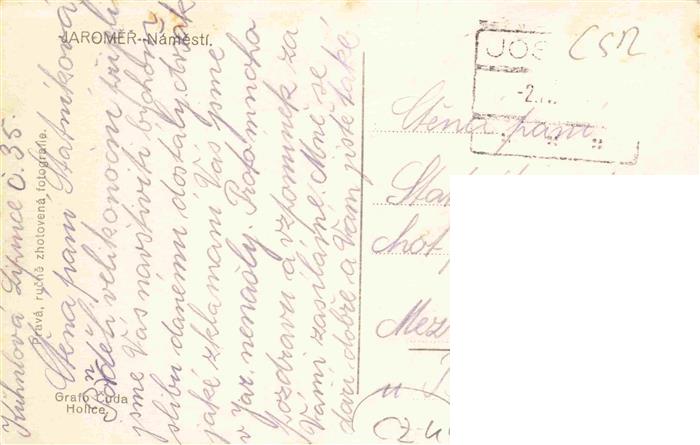 JAROMĚŘ–Náměstí.
Pravá, ručně zhotovená fotografie.
Grafo Čuda
Holice.
Kühnlová Lipnice č. 35.
Ctěná paní Statníková
neděli velikonoční
jsme Vás navštívili bychom
slibu danému dostály, avšak
jaké zklamání Vás jsme
v Jar. nenašly. Proto mnoho
pozdravů a vzpomínek za
Vámi zasíláme. Mně se
daří dobře a Vám jistě také
JOS
-2.
ČSR
Ctěná paní
Sta
choť
Mez
u J